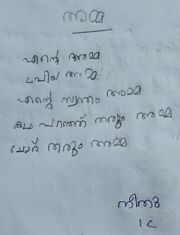 അമ്മ
എന്റെ അമ്മ
പ്രിയ അമ്മ
എന്റെ സ്വന്തം അമ്മ
കഥ പറഞ്ഞ് തരും അമ്മ
ചോറ് തരും അമ്മ
നീതു
1 C